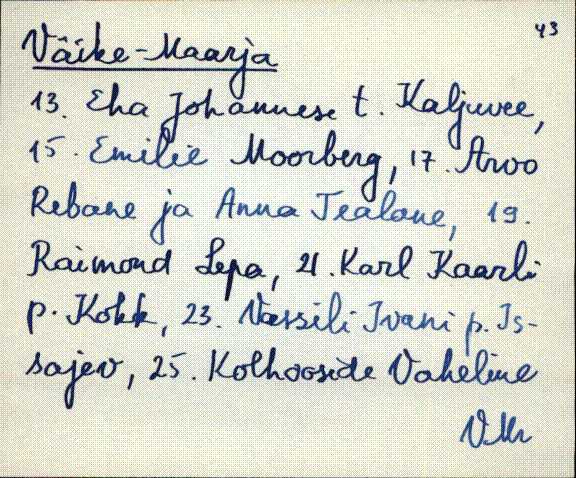 43
Väike-Maarja
13. Eha Johannese t. Kaljuvee,
15. Emilie Moorberg, 17. Arvo
Rebane ja Anna Tealane, 19.
Raimond Lepa, 21. Karl Kaarli
p. Kokk, 23. Vassili Ivani p. Is-
sajev, 25. Kolhooside Vaheline